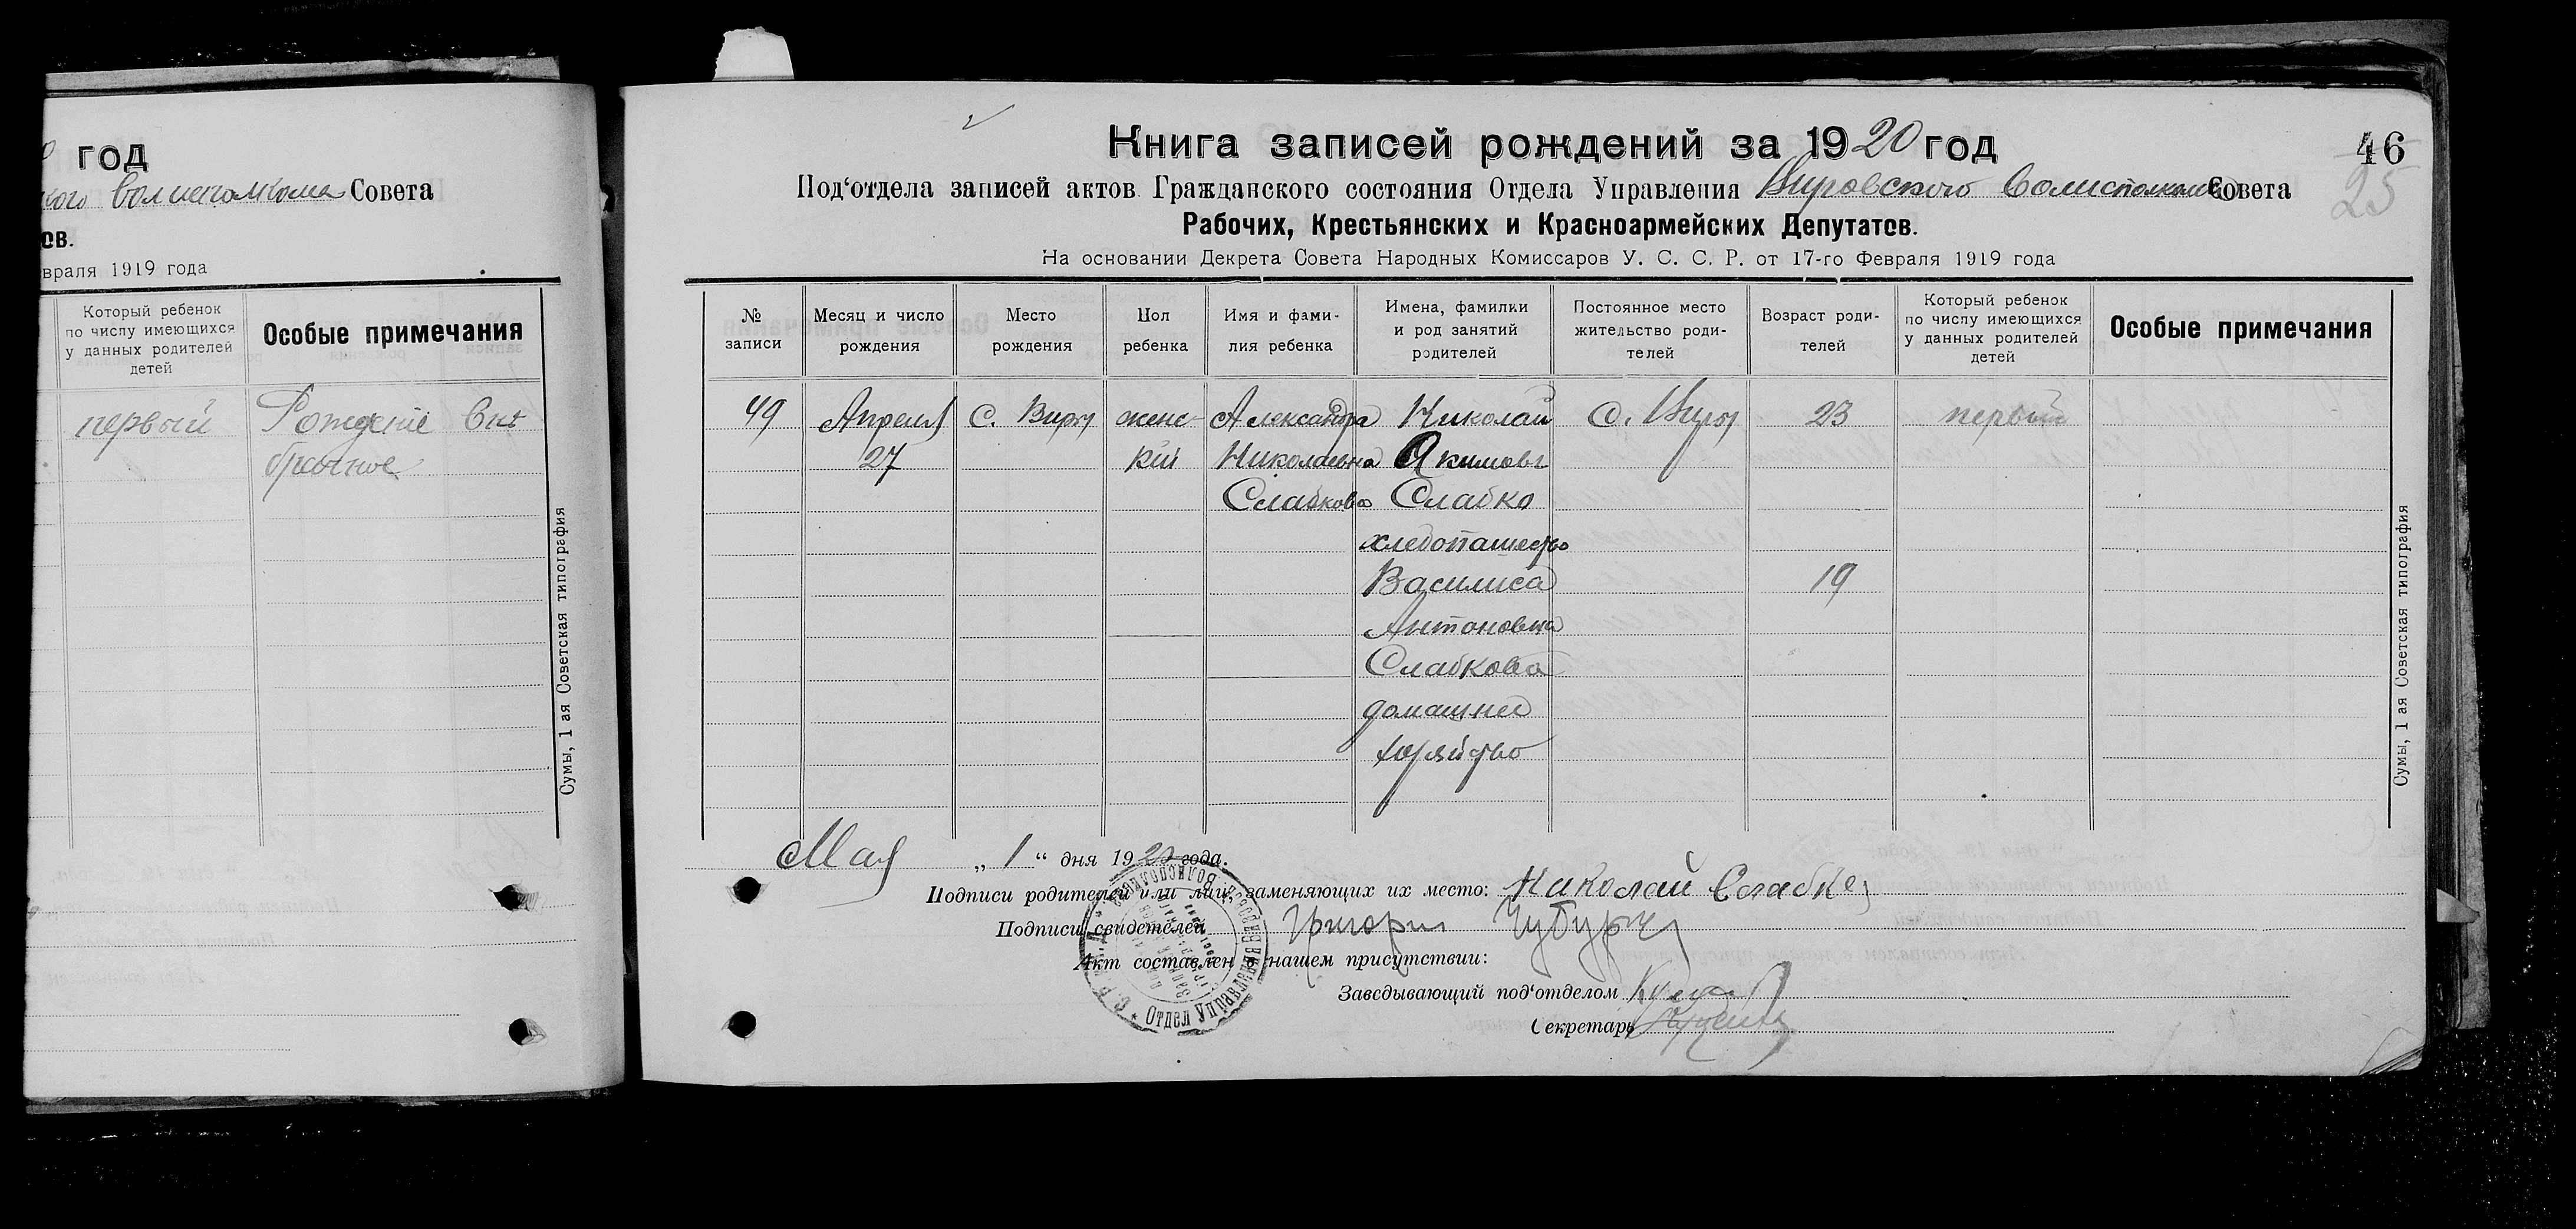 год
волисполкома Совета
ов.
враля 1919 года
Который ребенок
по числу имеющихся
у данных родителей
детей
Особые примечания
первый
Рождение вне
брачное
Сумы, 1 ая Советская типография
Книга записей рождений за 1920 год
46
25
Под'отдела записей актов Гражданского состояния Отдела Управления Вировского Волисполкома Совета
Рабочих, Крестьянских и Красноармейских Депутатов.
На основании Декрета Совета Народных Комиссаров У. С. С. Р. от 17-го Февраля 1919 года
№
записи
Месяц и число
рождения
Место
рождения
Пол
ребенка
Имя и фами-
лия ребенка
Имена, фамилки
и род занятий
родителей
Постоянное место
жительство роди-
телей
Возраст роди-
телей
Который ребенок
по числу имеющихся
у данных родителей
детей
Особые примечания
49 Апреля С. Виры женс- Александра Николай С. Виры 23 первый
27 кий Николаевна Якимовъ
Слабкова Слабко
хлебопашество
Василиса 19
Антоновна
Слабкова
домашнее
хозяйство
Мая „ 1 “ дня 1920 года.
Подписи родителей или лиц, заменяющих их место: Николай Слабко
Подписи свидетелей Григорий
Акт составлен в нашем присутствии:
Заведывающий под'отделом
Секретарь
Отдел Управления
Сумы, 1 ая Советская типография